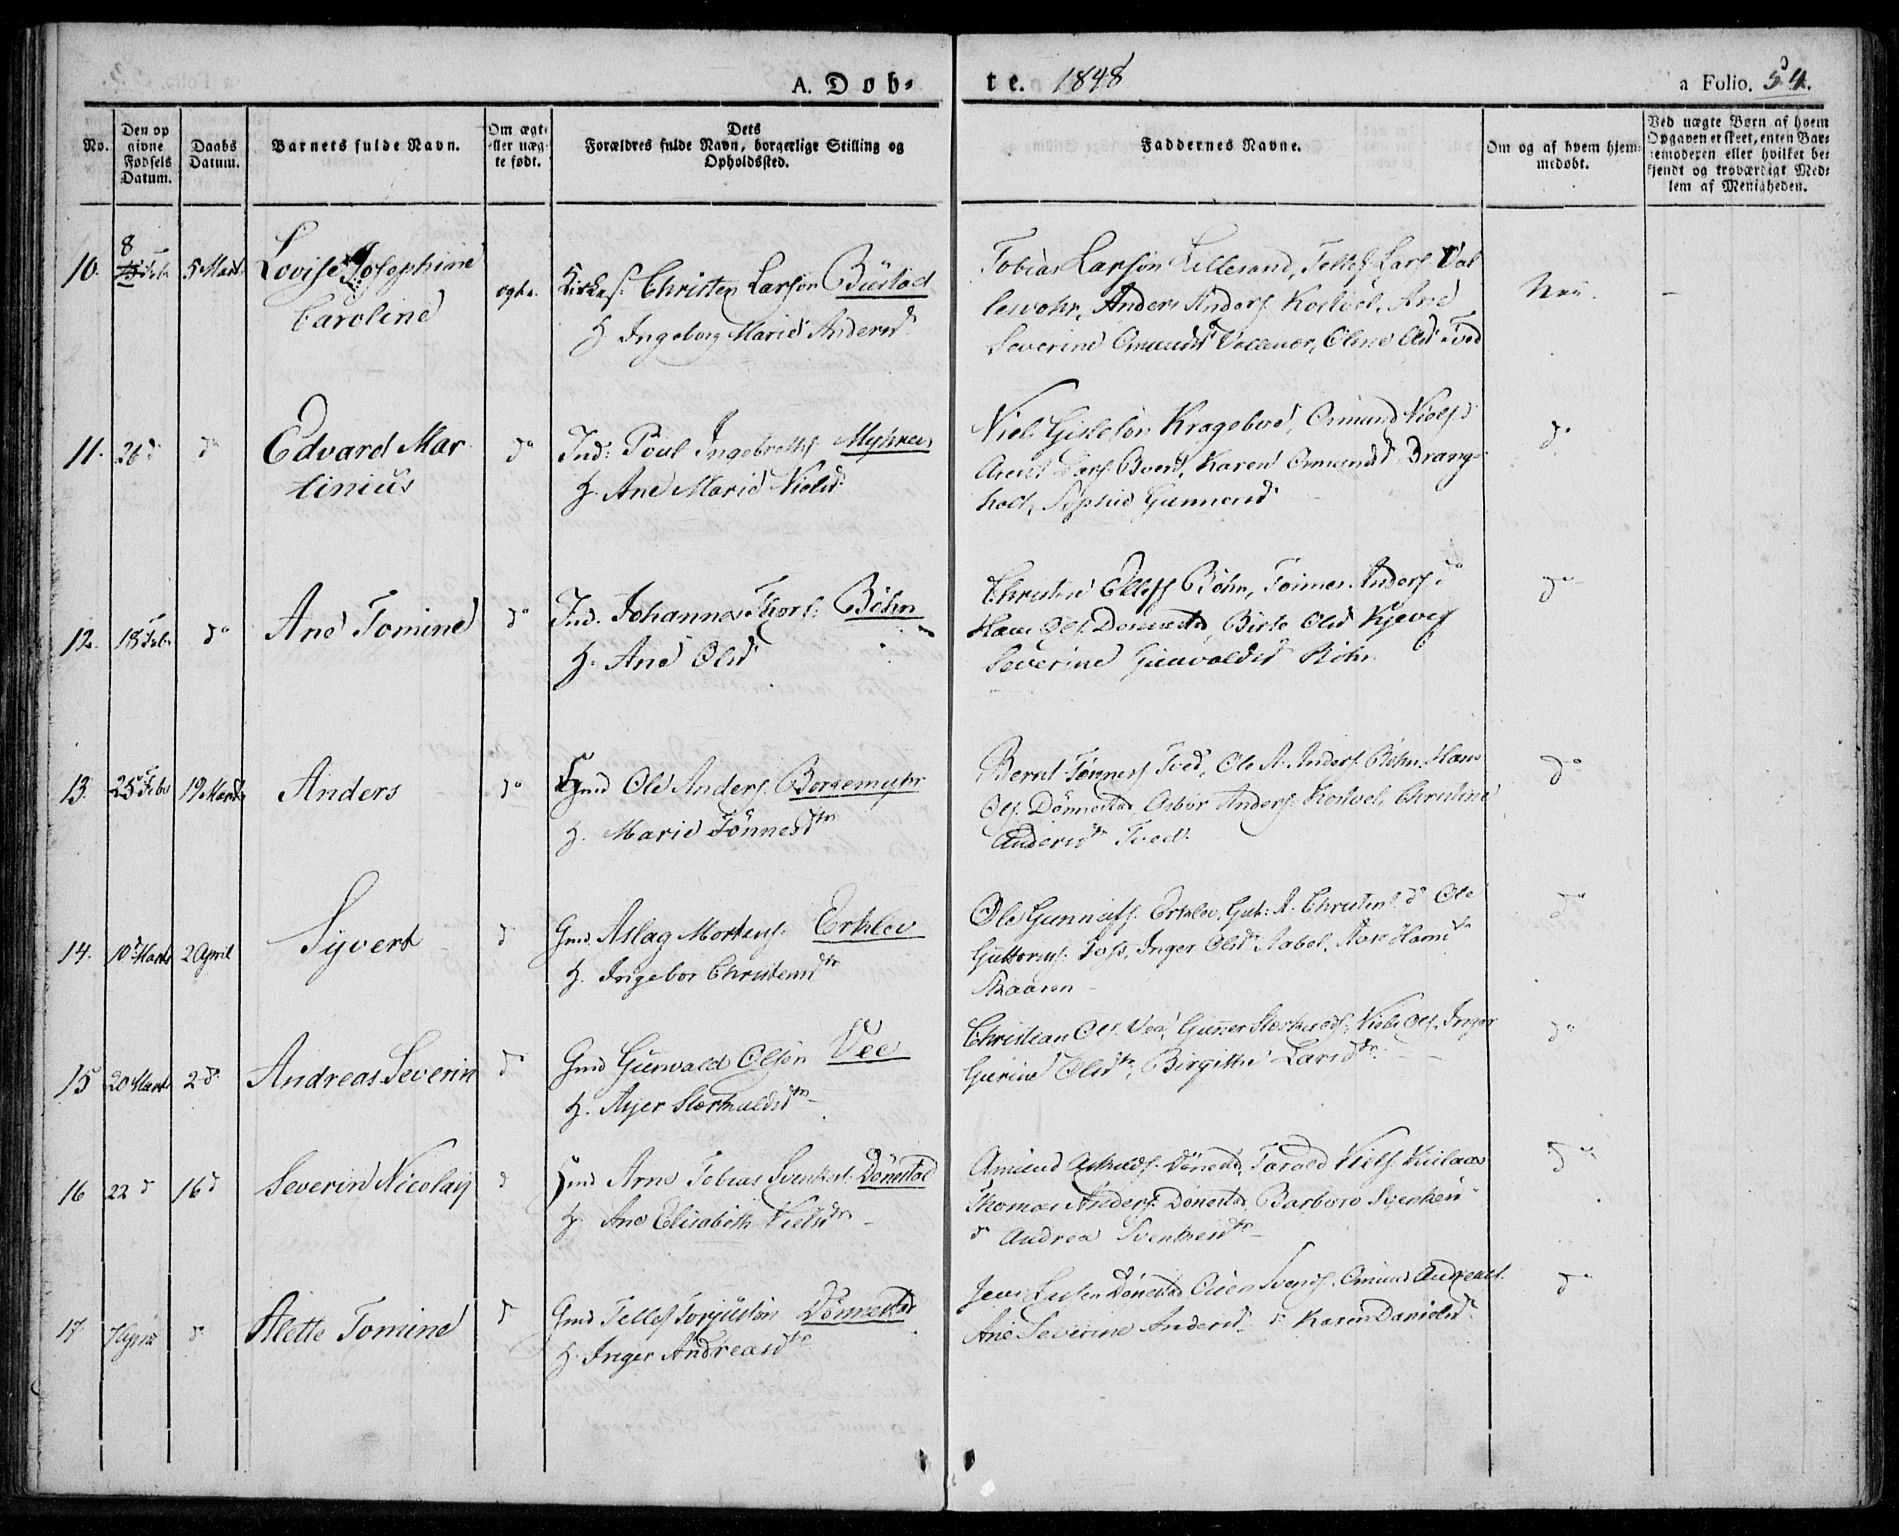 A. Døb-
te. 1848
a Folio. 54.
No.
Den op
givne
Fødsels
Datum.
Daabs
Datum.
Barnets fulde Navn.
Om ægte
eller uæg-
te født.
Dets
Forældres fulde Navn, borgerlige Stilling og
Opholdssted.
Faddernes Navne.
Om og af hvem hjem-
medøbt.
Ved uægte Børn af hvem
Opgaven er skeet, enten Bar-
nemoderen eller hvilket be-
kjendt og troværdigt Med-
lem af Menigheden.
10.
8
Feb
5 Marts
Lovise Josephine
Caroline
ægte.
Christen Larsøn Bustad
H. Ingeborg Marie Andersd
Tobias Larsøn Lillesand, Tellef Lars. Val
Anders Anders. Kostvel, Ane
Severine Omunds Vallener, Olene Olsd Tved
Nei.
—
11.
26 d
do
Edvard Mar
tinius
do
Ind: Poul Ingebreths. Myhren
H. Ane Marie Nielsd.
Niels Gislesøn Kragebod, Omund Niels. do
Lars. Boen, Karen Omundsd Drang-
holt, Sophie Gunnersd
do
12.
18 Feb
do
Ane Tomine
do
Ind. Johannes Thors. Bøhn
H. Ane Olsd
Christen Ellefs Bøhn, Tønnes Anders. do
Hans Ols. Dønnestad, Birte Olsd Kjevig
Severine Gunvaldsd Bøhn
do
13.
25 Feb
19 Marts
Anders
do
Gmd Ole Anders. Borgemyhr
H. Marie Tønnesdtr
Bernt Tønness Tved, Ole A. Anders. Bøhn, Hans
Ols. Dønnestad Asbør Anders. Kostvel, Christine
Andersdtr Tved.
do
14.
10 Marts
2 April
Syvert
d
Gmd Aslag Mortens. Erklev
H. Ingebor Christensdtr
Ole Gunnulfs. Erklev, Gub: A. Christens. do Ole
Guttorms. Foss, Inger Olsdtr Aabel, Aase Hansdtr
Skaaren
do
15
20 Marts
2 d.
Andreas Severin
d
Gmd Gunvald Olsøn Vee
H. Asjer Stærkuldsdtr
Christian Ols. Vee, Gunner Stærkulds. Niels Ols. Inger
Gurine Olsdtr, Birgitte Larsdtr
do
16
22 d
16 d
Severin Nicolay
d
Arne Tobias Svenkes. Dønestad
H. Ane Elisabeth Nielsdtr
Amund Dønestd, Tarald Niels
Thomas Anders. Dønestad, Barbara Svenkesd
d Andrea Svenkesdtr
do
17
d
Alette Tomine
d
Gmd Tellef Torjusson Dønnestad
H. Inger Andreasdtr
Jens Dønestad Svends. Omund Andreas.
Ane Severine Andersd d Karen Danielsd
do